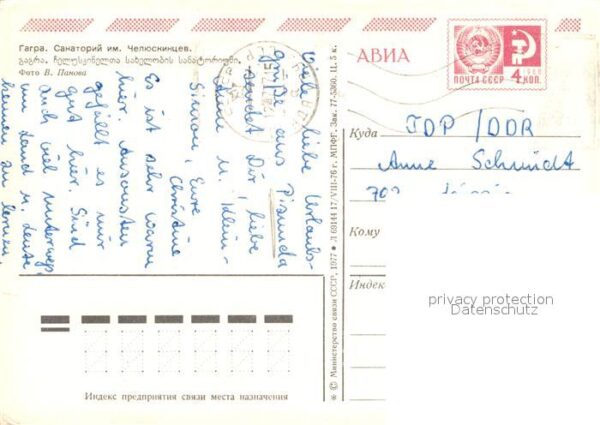 Гагра. Санаторий им. Челюскинцев.
გაგრა. ჩელუსკინელთა სახელობის სანატორიუმი.
Фото В. Панова
Viele liebe Urlaubs-
grüße aus Pizunda
sendet Dir, liebe
Anne u. Klein-
Simon, Eure
Christine
Es ist sehr warm
hier. Ansonsten
gefällt es mir
gut hier. Sind
auch viel unterwegs,
um Land u. Leute
kennen zu lernen.
АВИА
ПОЧТА СССР
1966
4 КОП.
Куда
ГДР / DDR
Anne Schmidt
Кому
Индекс
privacy protection
Datenschutz
Индекс предприятия связи места назначения
* © Министерство связи СССР, 1977 * Л 69144 17/VIII-76 г. МПФГ. Зак. 77-5360. Ц. 5 к.